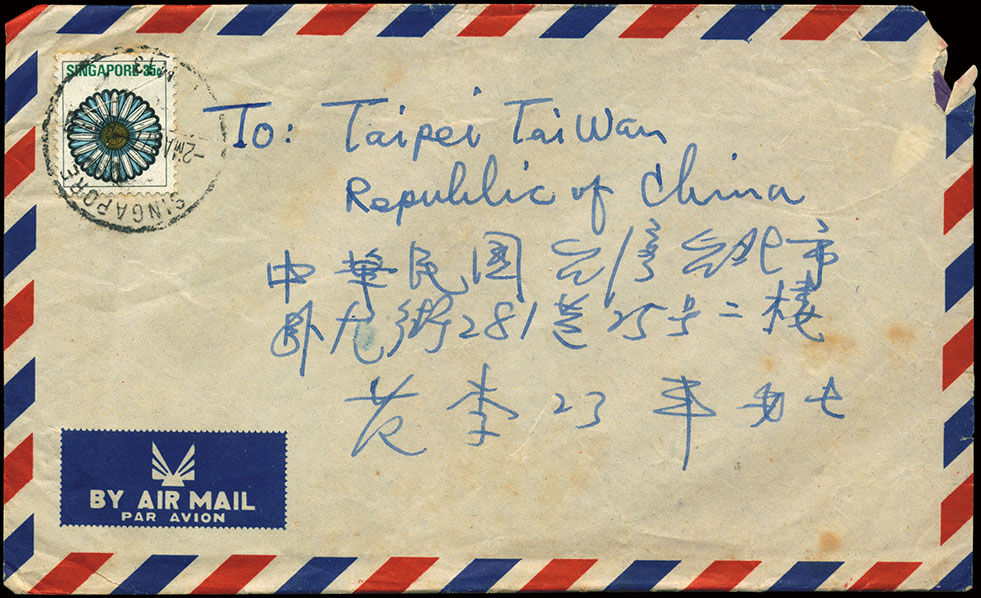 SINGAPORE 35c
SINGAPORE
To: Taipei Taiwan
Republic of China
中華民國台灣台北市
臥龙街281巷25号二楼
李
BY AIR MAIL
PAR AVION